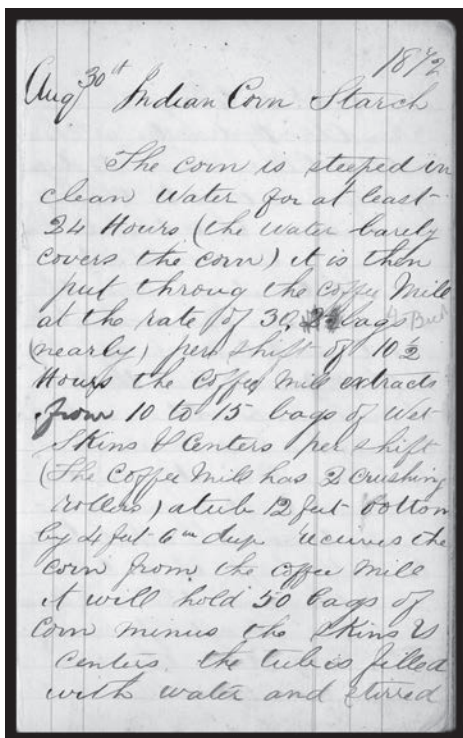 1872
Aug 30th Indian Corn Starch
The corn is steeped in
clean water for at least
24 Hours (the water barely
covers the corn) it is then
put throug the coffee Mill
at the rate of 30 bags
(nearly) per shift of 10 ½
Hours the Coffee Mill extracts
from 10 to 15 bags of Wet
Skins & Centers per shift
(The Coffee Mill has 2 Crushing
rollers) a tub 12 feet bottom
by 4 feet 6 in deep recieves the
Corn from the coffee Mill
it will hold 50 bags of
Corn minus the Skins &
Centers. the tub is filled
with water and stirred